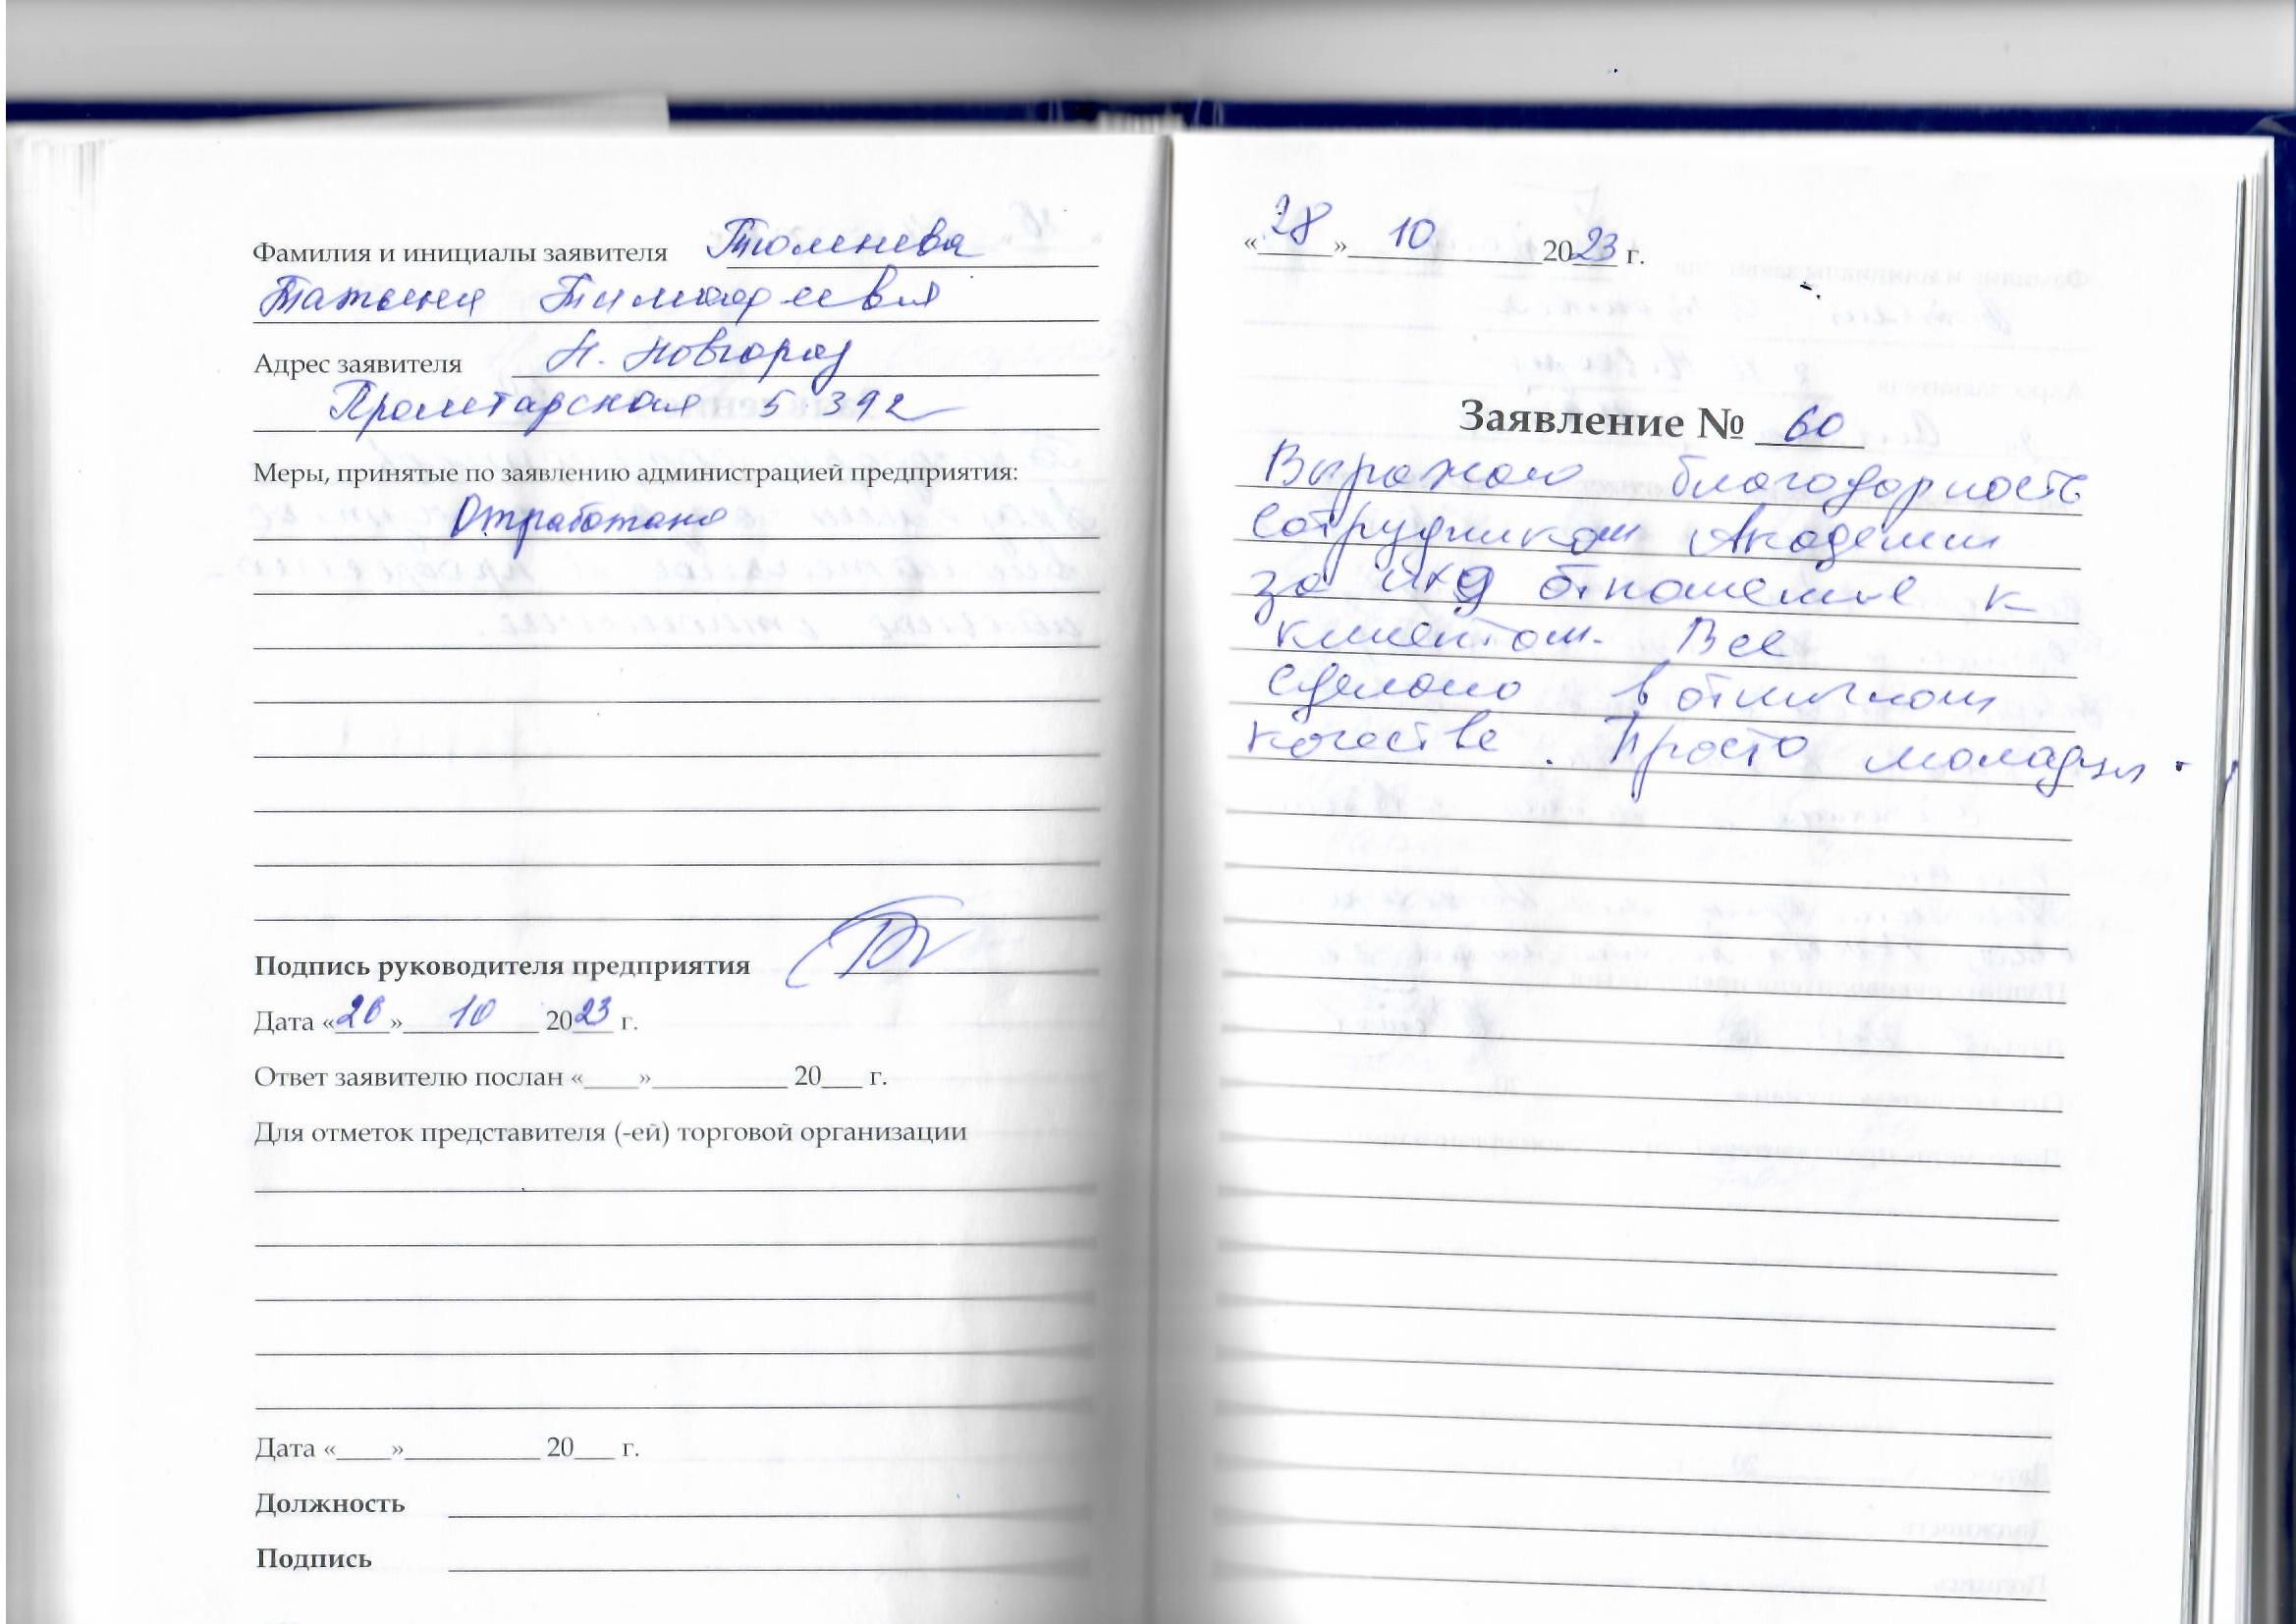 Фамилия и инициалы заявителя Тюленева
Татьяна Тимофеевна
Адрес заявителя Н. Новгород
Пролетарская 5 392
Меры, принятые по заявлению администрацией предприятия:
Отработано
Подпись руководителя предприятия
Дата «26» 10 2023 г.
Ответ заявителю послан «____»__________ 20___ г.
Для отметок представителя (-ей) торговой организации
Дата «____»__________ 20___ г.
Должность
Подпись
«28» 10 2023 г.
Заявление № 60
Выражаю благодарность
сотрудникам Академии
за отношение к
клиентам. Все
сделано в отличном
качестве. Просто молодцы.